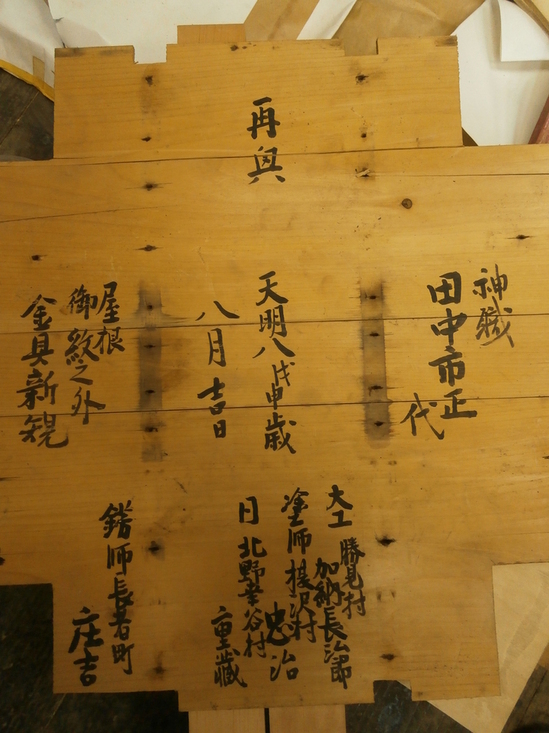 再興
神職
田中市正
代
天明八戊申歳
八月吉日
屋根
御紋之外
金具新規
大工 勝見村
加納長治郎
塗師 村
忠治
日 北野 谷村
重藏
錺師長者町
庄吉